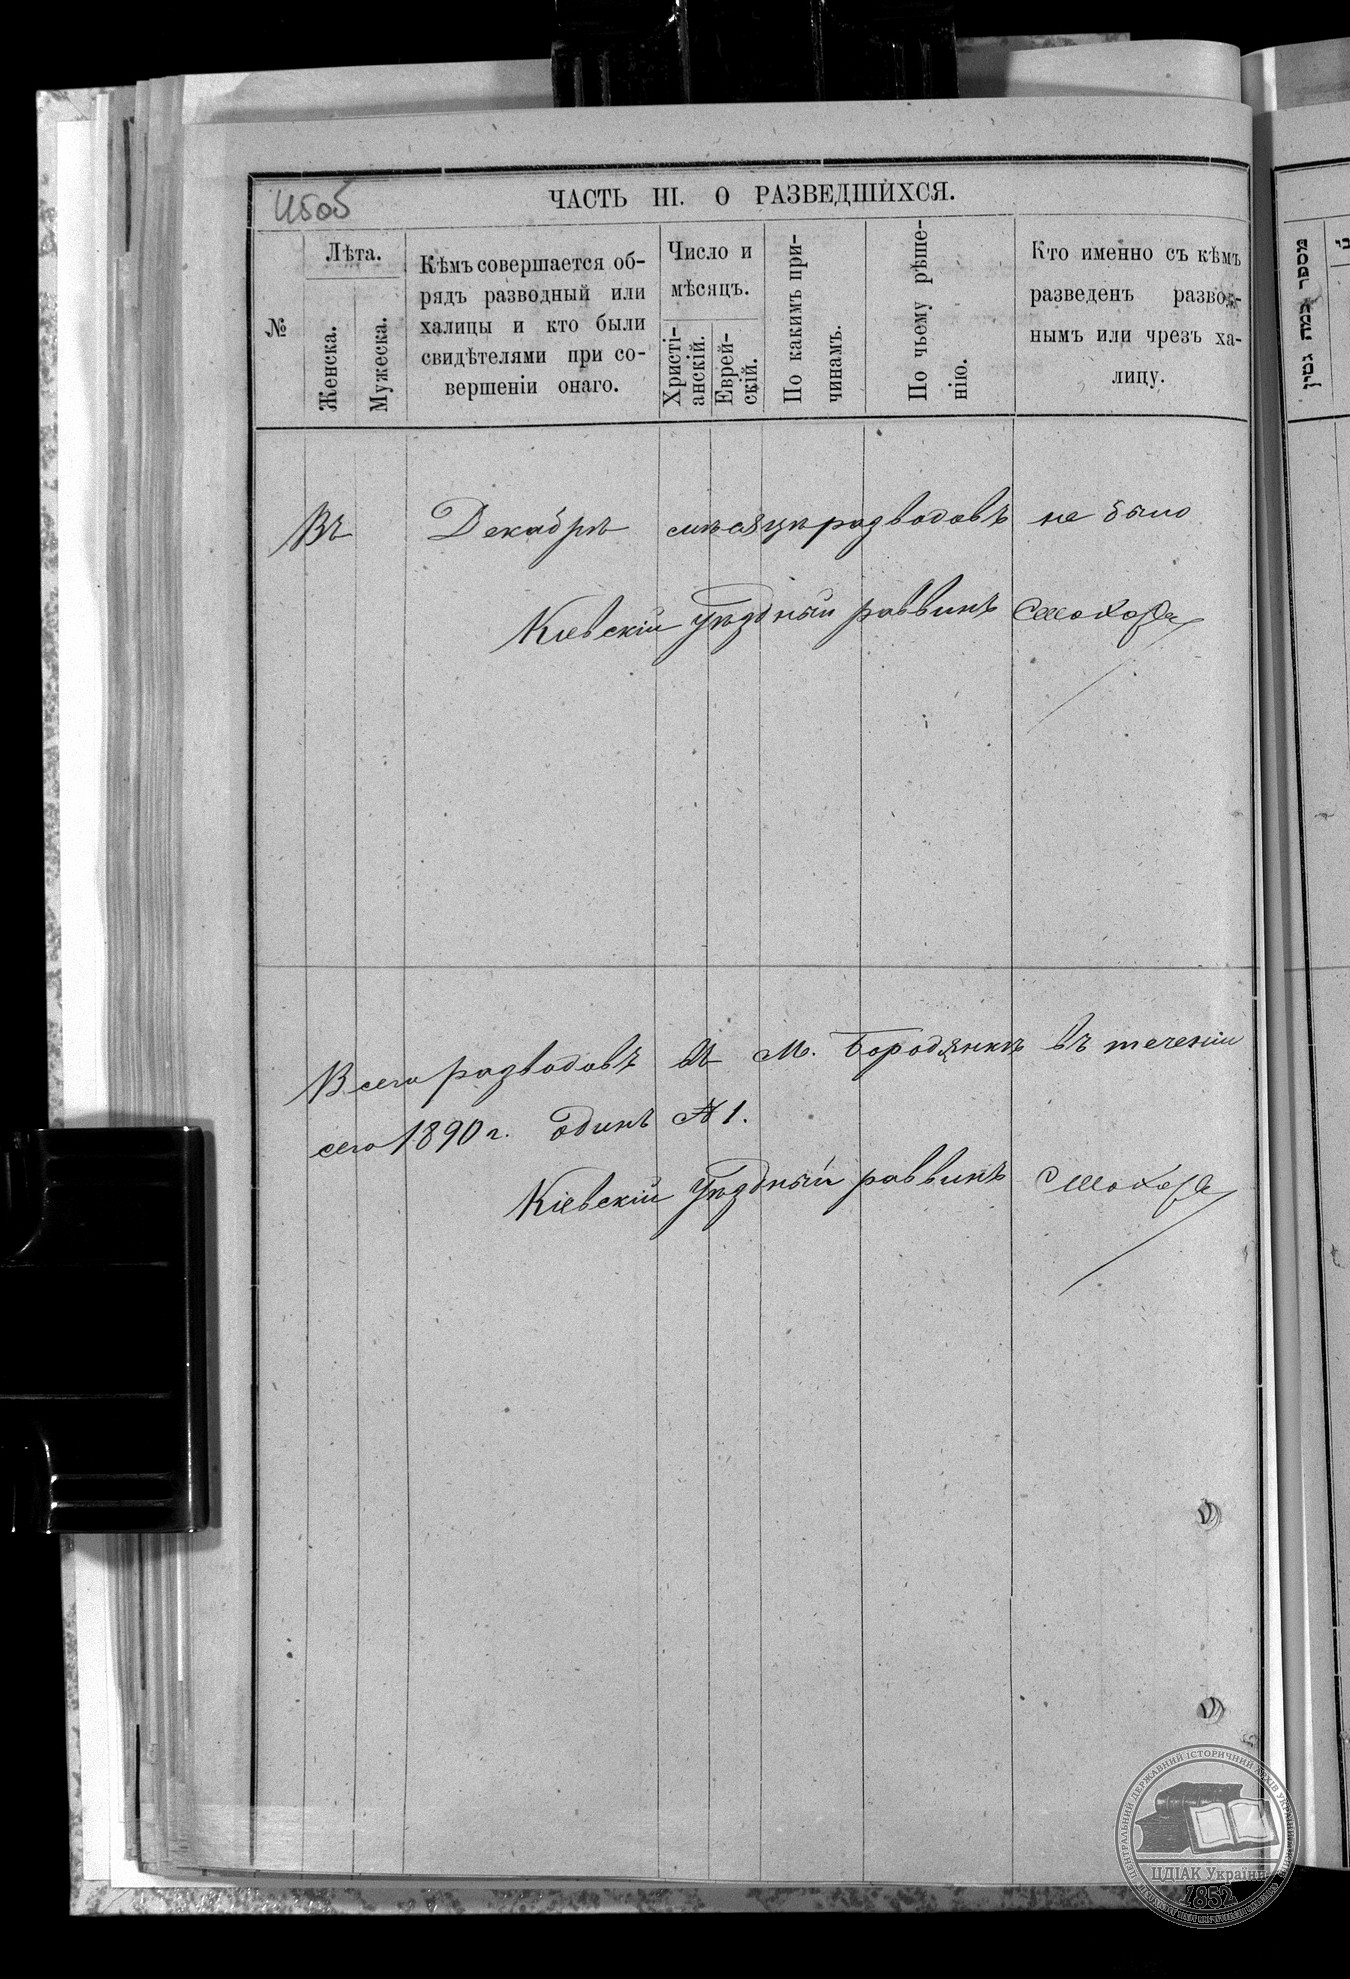 ЧАСТЬ III. О РАЗВЕДШИХСЯ.
№
Лѣта.
Женска.
Мужеска.
Кѣмъ совершается об-
рядъ разводный или
халицы и кто были
свидѣтелями при со-
вершеніи онаго.
Число и
мѣсяцъ.
Христі-
анскій.
Еврей-
скій.
По какимъ при-
чинамъ.
По чьему рѣше-
нію.
Кто именно съ кѣмъ
разведенъ развод-
нымъ или чрезъ ха-
лицу.
מספר כמה גטין
Въ Декабрѣ мѣсяцѣ разводовъ не было
Кіевскій уѣздный раввинъ
Всего разводовъ въ М. Бородянкѣ въ теченіи
сего 1890 г. одинъ № 1.
Кіевскій уѣздный раввинъ
ЦЕНТРАЛЬНИЙ ДЕРЖАВНИЙ ІСТОРИЧНИЙ АРХІВ УКРАЇНИ
ЦДІАК України
1852